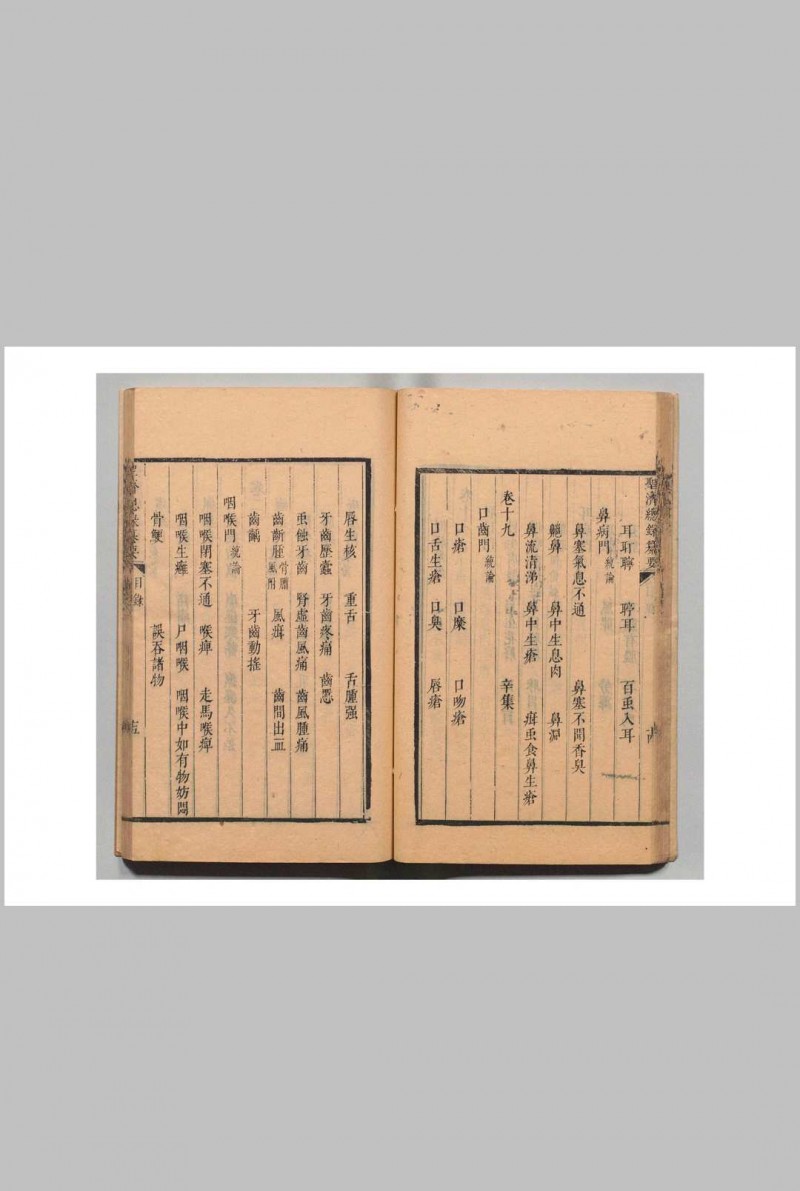 聖濟總錄纂要
耳耵聹 聤耳 百虫入耳
鼻病門 統論
鼻塞氣息不通 鼻塞不聞香臭
鼽鼻 鼻中生息肉 鼻淵
鼻流清涕 鼻中生瘡 疳虫食鼻生瘡
卷十九 辛集
口齒門 統論
口瘡 口糜 口吻瘡
口舌生瘡 口臭 唇瘡
唇生核 重舌 舌腫强
牙齒歷蠹 牙齒疼痛 齒惡
虫蝕牙齒 腎虛齒風痛 齒風腫痛
齒齗腫 風疳 齒間出血
齒齲 牙齒動搖
咽喉門 統論
咽喉閉塞不通 喉痺 走馬喉痺
咽喉生癰 尸咽喉 咽喉中如有物妨悶
骨鯁 誤吞諸物
目錄